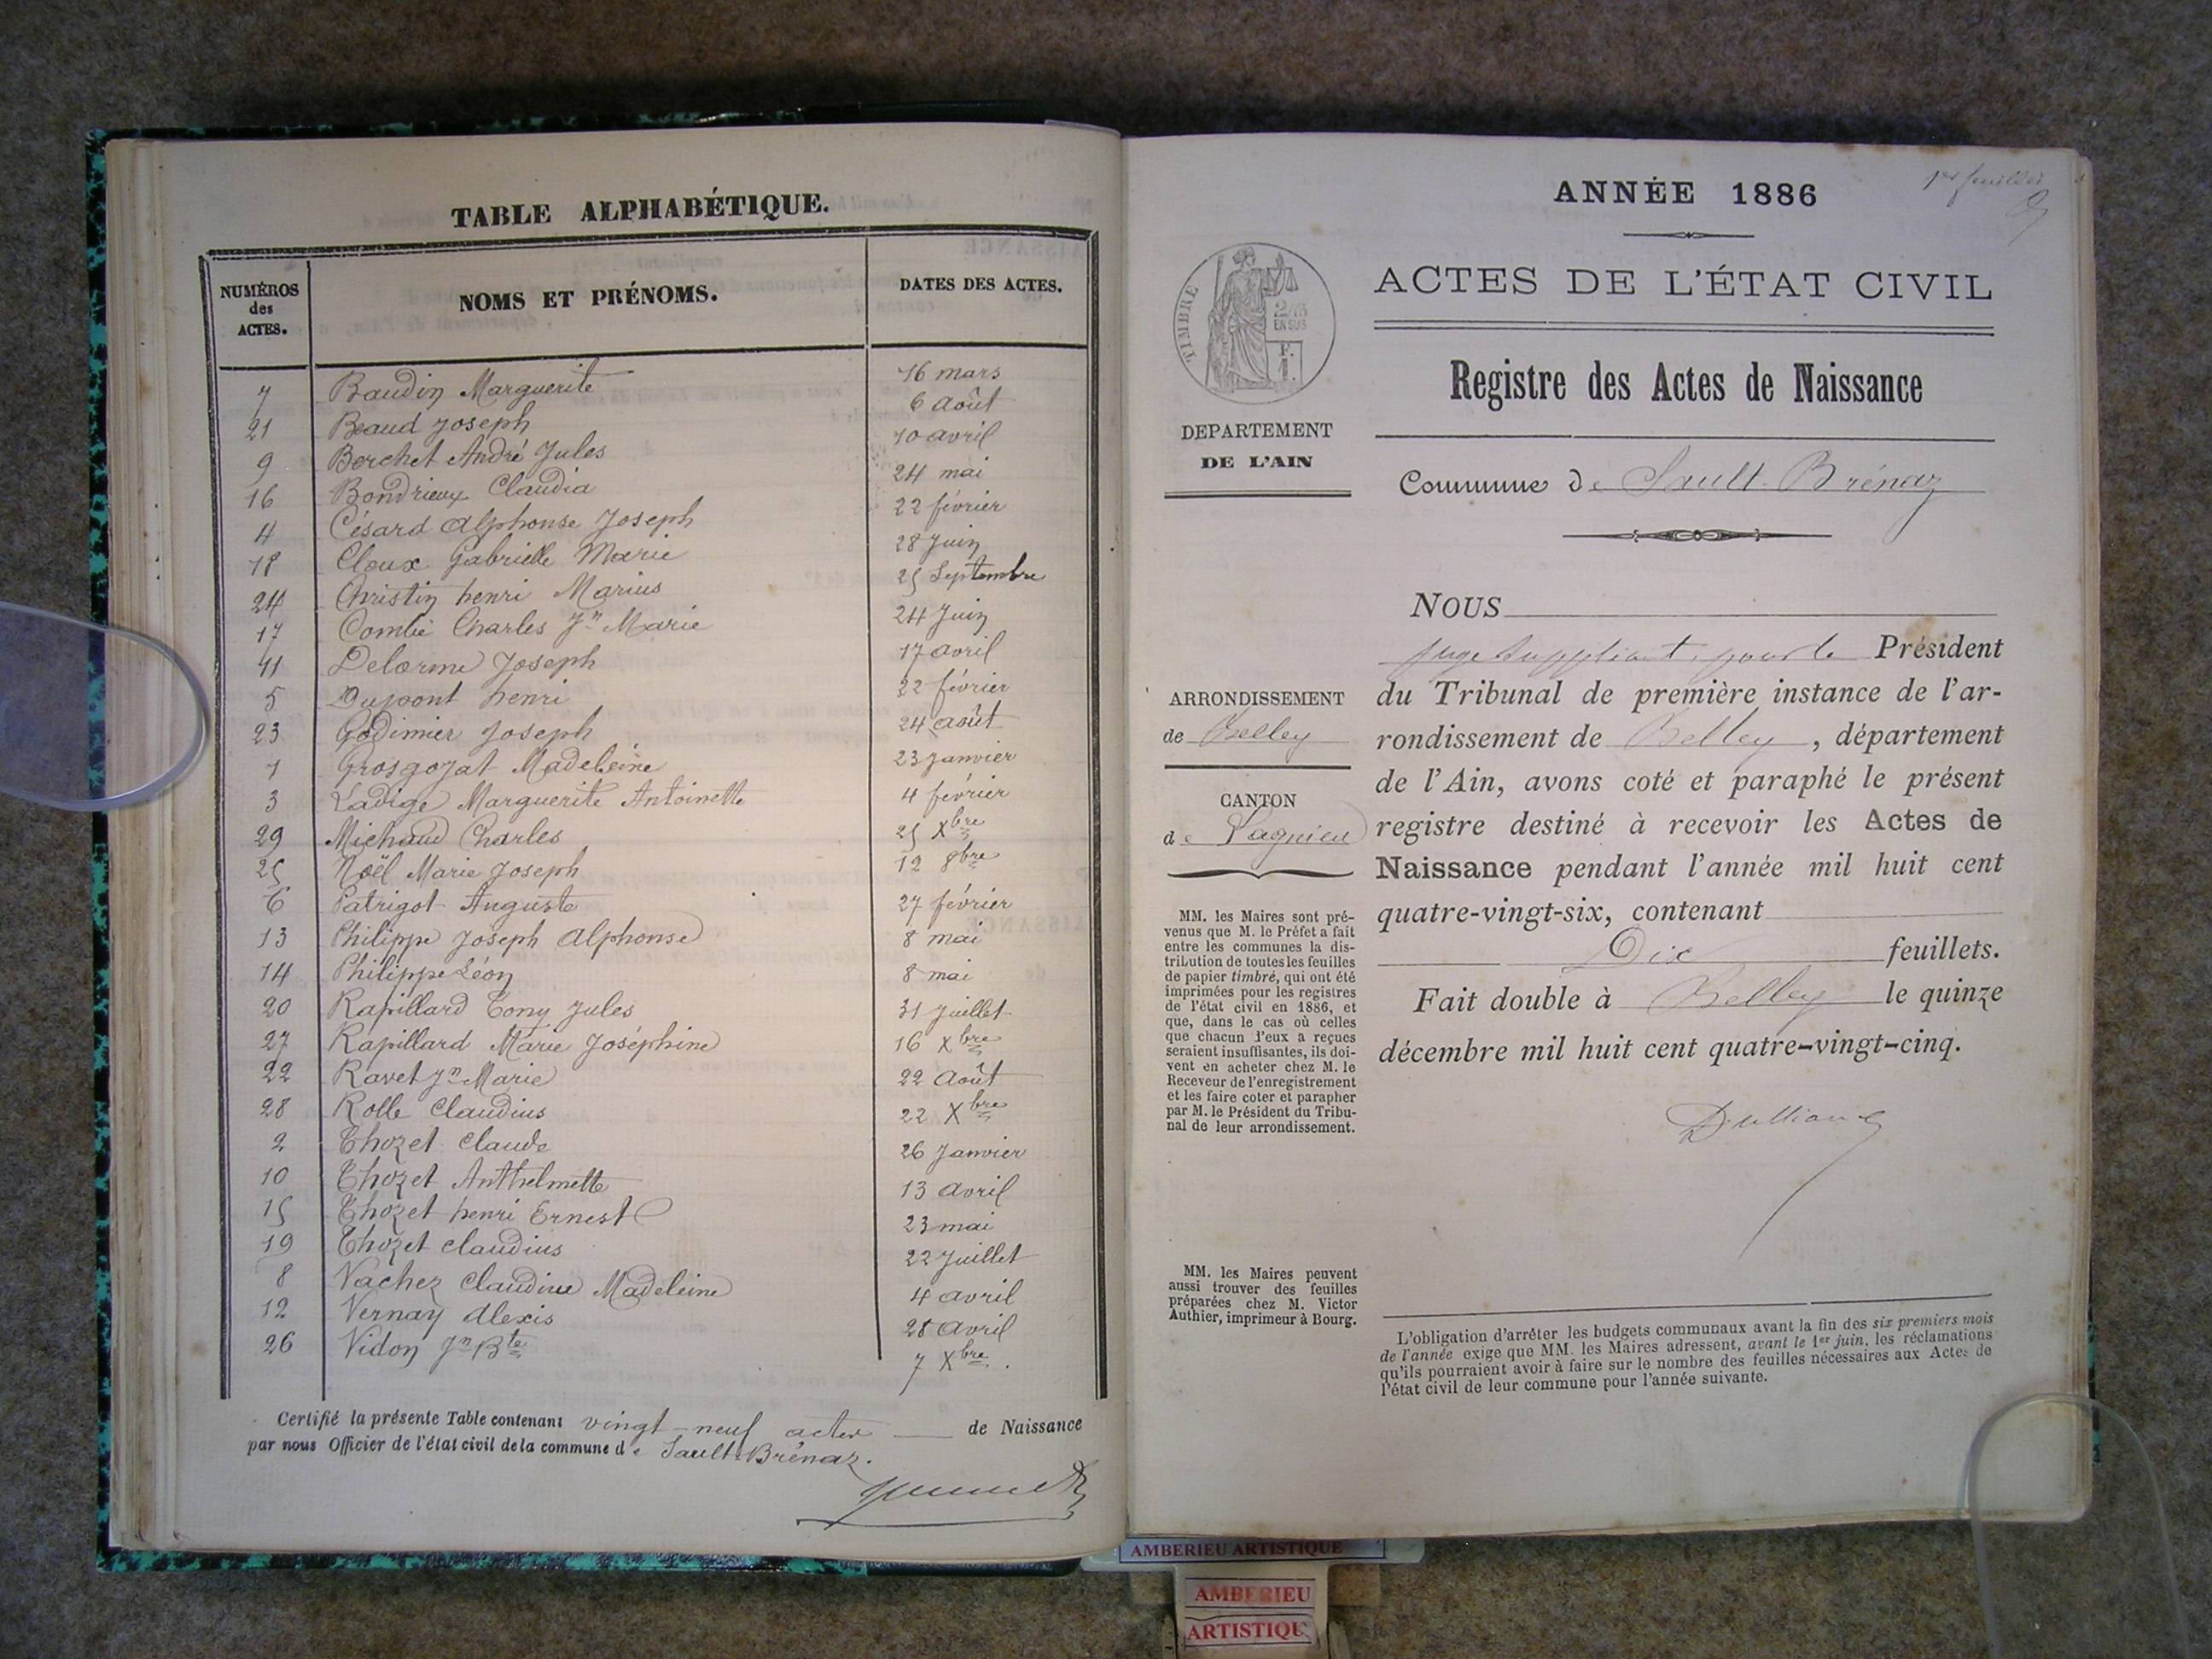 TABLE ALPHABÉTIQUE.
NUMÉROS des ACTES. NOMS ET PRÉNOMS. DATES DES ACTES.
7 Baudin Marguerite 16 mars
21 Beaud Joseph 6 août
9 Berchet André Jules 10 avril
16 Bondrieux Claudia 24 mai
4 Césard Alphonse Joseph 22 février
18 Cloux Gabrielle Marie 28 Juin
24 Christin henri Marius 25 Septembre
17 Combe Charles Jn Marie 24 Juin
11 Delorme Joseph 17 avril
5 Dupont henri 22 février
23 Godimier Joseph 24 août
1 Grosgojat Madeleine 23 Janvier
3 Ladige Marguerite Antoinette 4 février
29 Michaud Charles 25 Xbre
25 Noël Marie Joseph 12 8bre
6 Patrigot Auguste 27 février
13 Philippe Joseph Alphonse 8 mai
14 Philippe Léon 8 mai
20 Rapillard Tony Jules 31 Juillet
27 Rapillard Marie Joséphine 16 Xbre
22 Ravet Jn Marie 22 Août
28 Rolle Claudius 22 Xbre
2 Thozet Claude 26 Janvier
10 Thozet Anthelmette 13 avril
15 Thozet henri Ernest 23 mai
19 Thozet Claudius 22 Juillet
8 Vachez Claudine Madeleine 4 avril
12 Vernay Alexis 28 avril
26 Vidon Jn Bte 7 Xbre.
Certifié la présente Table contenant vingt-neuf actes de Naissance
par nous Officier de l'état civil de la commune de Sault-Brénaz.
1er feuillet
ANNÉE 1886
ACTES DE L'ÉTAT CIVIL
Registre des Actes de Naissance
Commune de Sault-Brénaz
TIMBRE
2/10
EN SUS
F.
1.
DEPARTEMENT
DE L'AIN
ARRONDISSEMENT
de Belley
CANTON
de Lagnieu
MM. les Maires sont pré-
venus que M. le Préfet a fait
entre les communes la dis-
tribution de toutes les feuilles
de papier timbré, qui ont été
imprimées pour les registres
de l'état civil en 1886, et
que, dans le cas où celles
que chacun d'eux a reçues
seraient insuffisantes, ils doi-
vent en acheter chez M. le
Receveur de l'enregistrement
et les faire coter et parapher
par M. le Président du Tribu-
nal de leur arrondissement.
MM. les Maires peuvent
aussi trouver des feuilles
préparées chez M. Victor
Authier, imprimeur à Bourg.
NOUS
juge suppléant, pour le Président
du Tribunal de première instance de l'ar-
rondissement de Belley, département
de l'Ain, avons coté et paraphé le présent
registre destiné à recevoir les Actes de
Naissance pendant l'année mil huit cent
quatre-vingt-six, contenant
Dix feuillets.
Fait double à Belley le quinze
décembre mil huit cent quatre-vingt-cinq.
L'obligation d'arrêter les budgets communaux avant la fin des six premiers mois
de l'année exige que MM. les Maires adressent, avant le 1er juin, les réclamations
qu'ils pourraient avoir à faire sur le nombre des feuilles nécessaires aux Actes de
l'état civil de leur commune pour l'année suivante.
AMBERIEU ARTISTIQUE
AMBERIEU
ARTISTIQUE